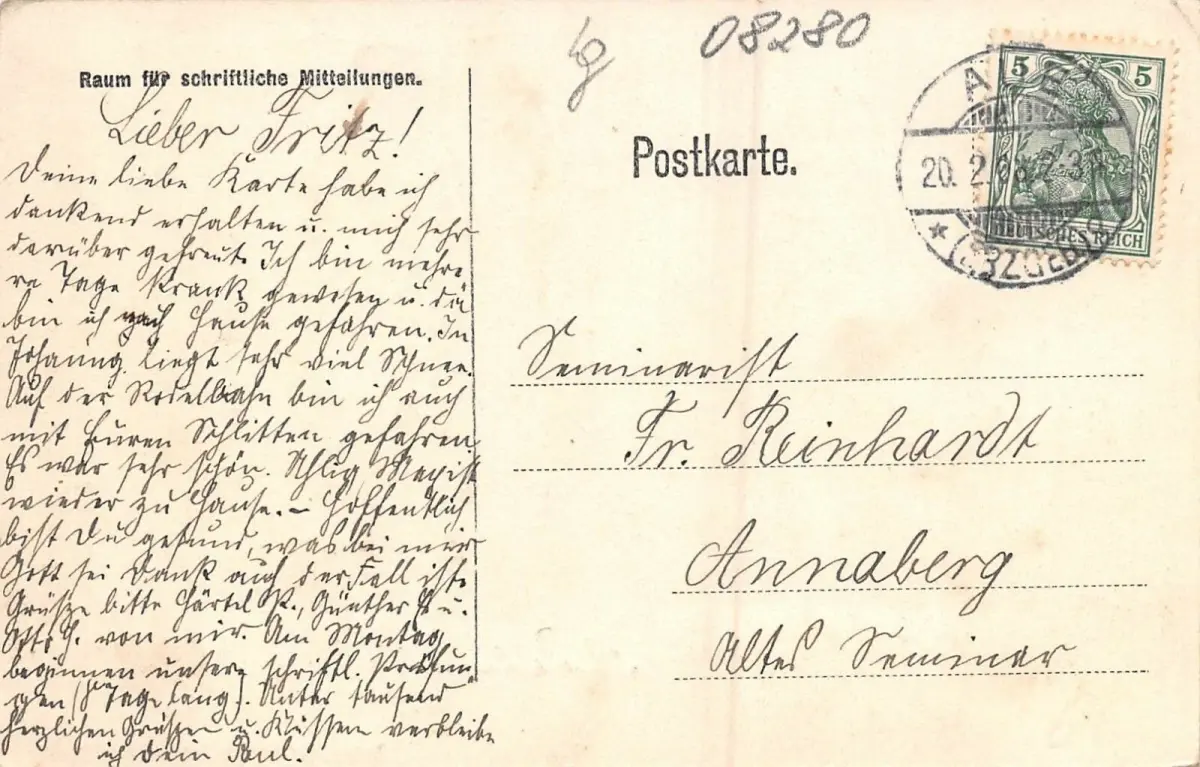 08280
Raum für schriftliche Mitteilungen.
Postkarte.
5 5
DEUTSCHES REICH
20. 2. 08
(ERZGEB.)
Lieber Fritz!
Deine liebe Karte habe ich
dankend erhalten u. mich sehr
darüber gefreut. Ich bin mehre-
re Tage krank gewesen u. da
bin ich nach Hause gefahren. In
liegt sehr viel Schnee.
Auf der Rodelbahn bin ich auch
mit Euren Schlitten gefahren.
Es war sehr schön. Uhlig
wieder zu Hause. – Hoffentlich
bist Du gesund, was bei mir
Gott sei Dank auch der Fall ist.
Grüsze bitte Härtel K., Günther u.
von mir. Am Montag
beginnen unsere schriftl. Prüfun-
gen (8 Tage lang). Unter tausend
herzlichen Grüszen u. Küssen verbleibe
ich Dein Paul.
Seminarist
Fr. Reinhardt
Annaberg
Altes Seminar